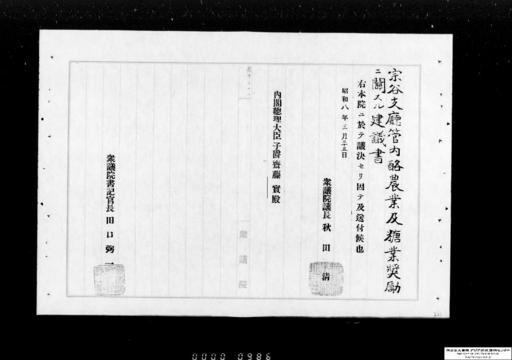 宗谷支廳管内酪農業及糖業奬勵
ニ關スル建議書
右本院ニ於テ議決セリ因テ及送付候也
昭和八年三月二十五日
衆議院議長 秋田 清
內閣總理大臣子爵齋藤 實殿
衆議院書記官長 田口弼一
衆議院
0000 0986